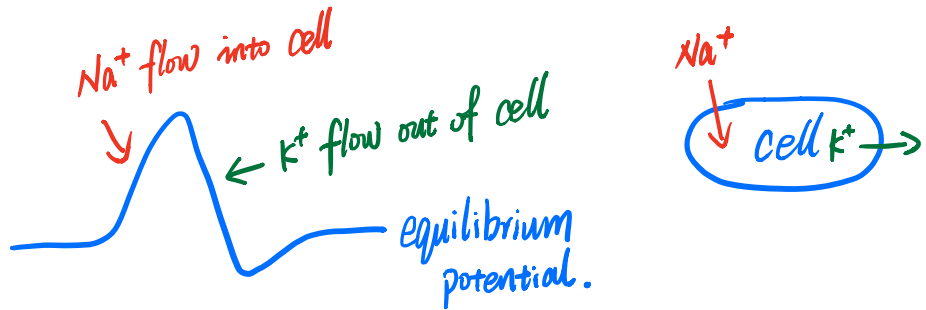 Na⁺ flow into cell
K⁺ flow out of cell
equilibrium
potential.
Na⁺
cell K⁺